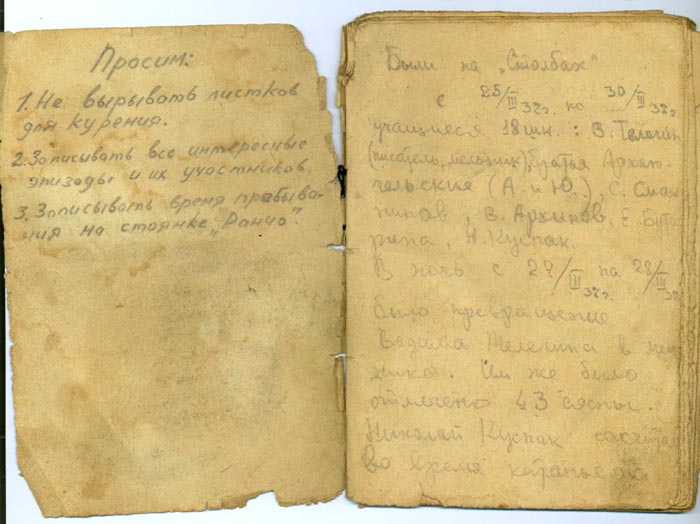 Просим:
1. Не вырывать листков
для курения.
2. Записывать все интересные
эпизоды и их участников.
3. Записывать время пребыва-
ния на стоянке „Ранчо".
Были на „Столбах"
с 25/III 37г. по 30/III 37г.
учащиеся 18 шк. : В. Телегин
(писатель, мельник), братья Архан-
гельские (А. и Ю.), С.
В. Архипов, Е.
Н. Куспак.
В ночь с 27/III на 28/III 37г.
было превращение
Вадима Телегина в
Им же было
отмечено 43
Николай Куспак
во время катанья